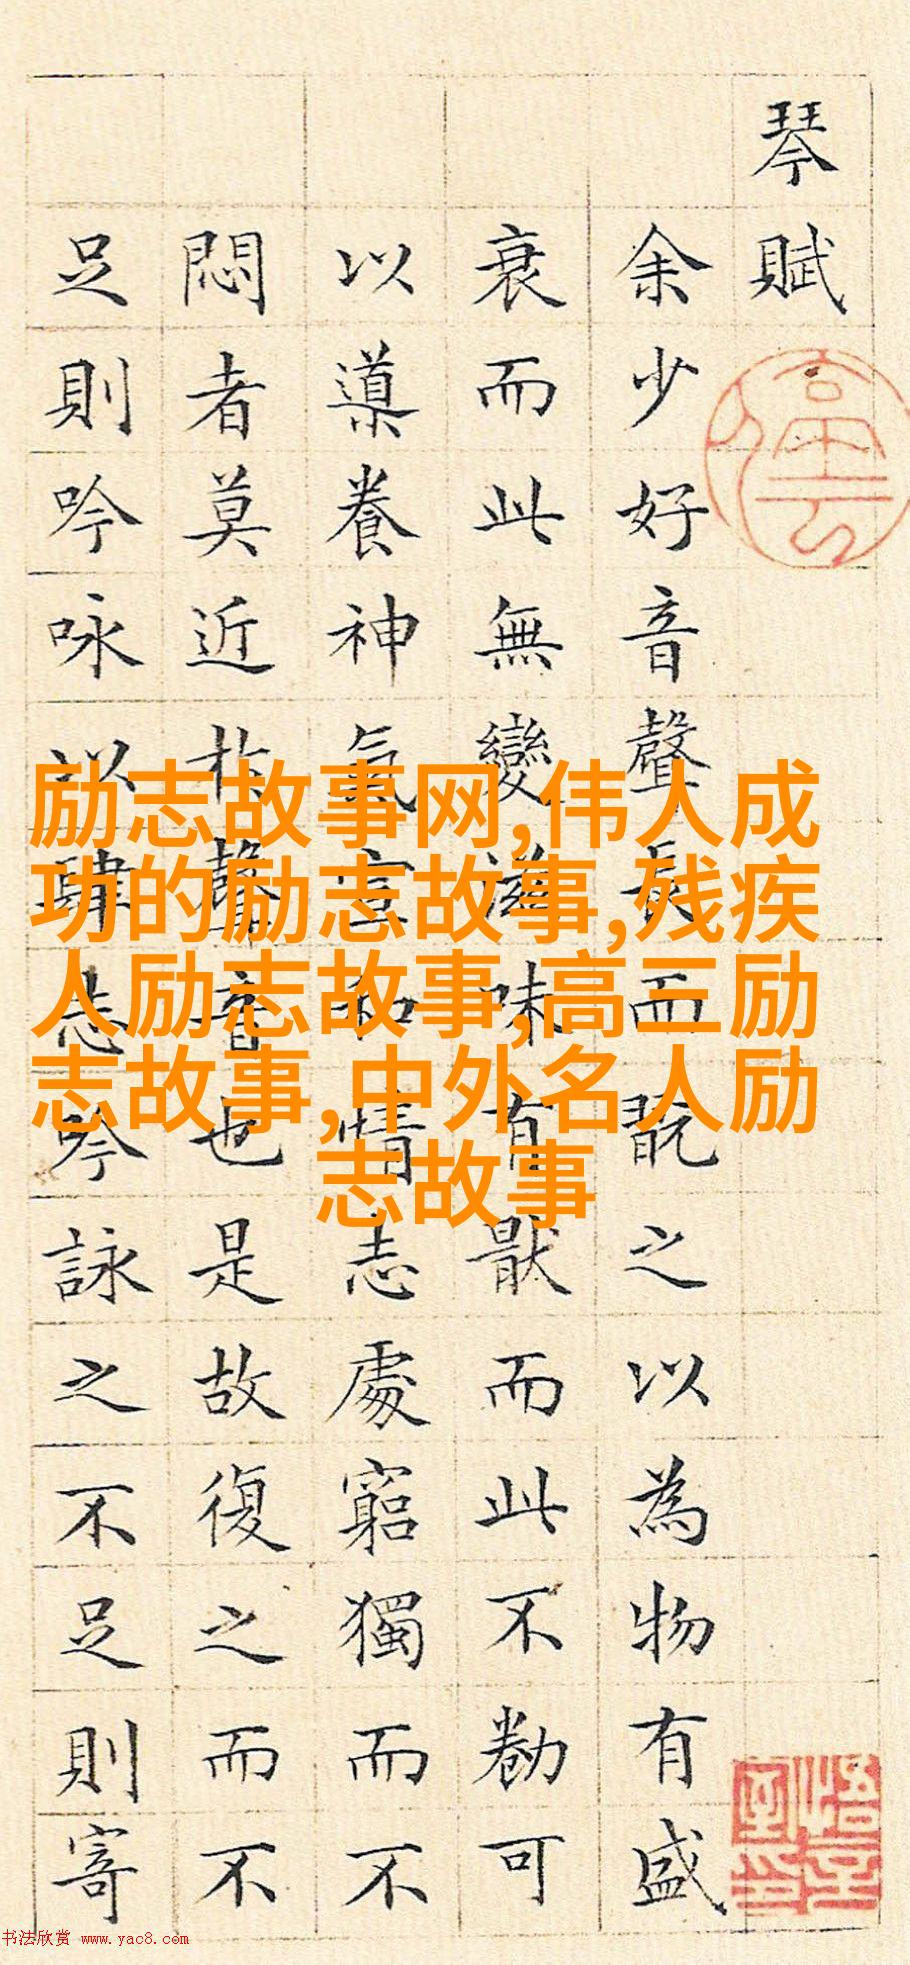 琴賦
余少好音聲長而翫之以為物有盛
衰而此無變滋味有猒而此不勌可
以導養神氣宣和情志處窮獨而不
悶者莫近扵聲音也是故復之而不
足則吟咏以肆志吟詠之不足則寄
励志故事网,伟人成
功的励志故事,残疾
人励志故事,高三励
志故事,中外名人励
志故事
书法欣赏 www.yac8.com